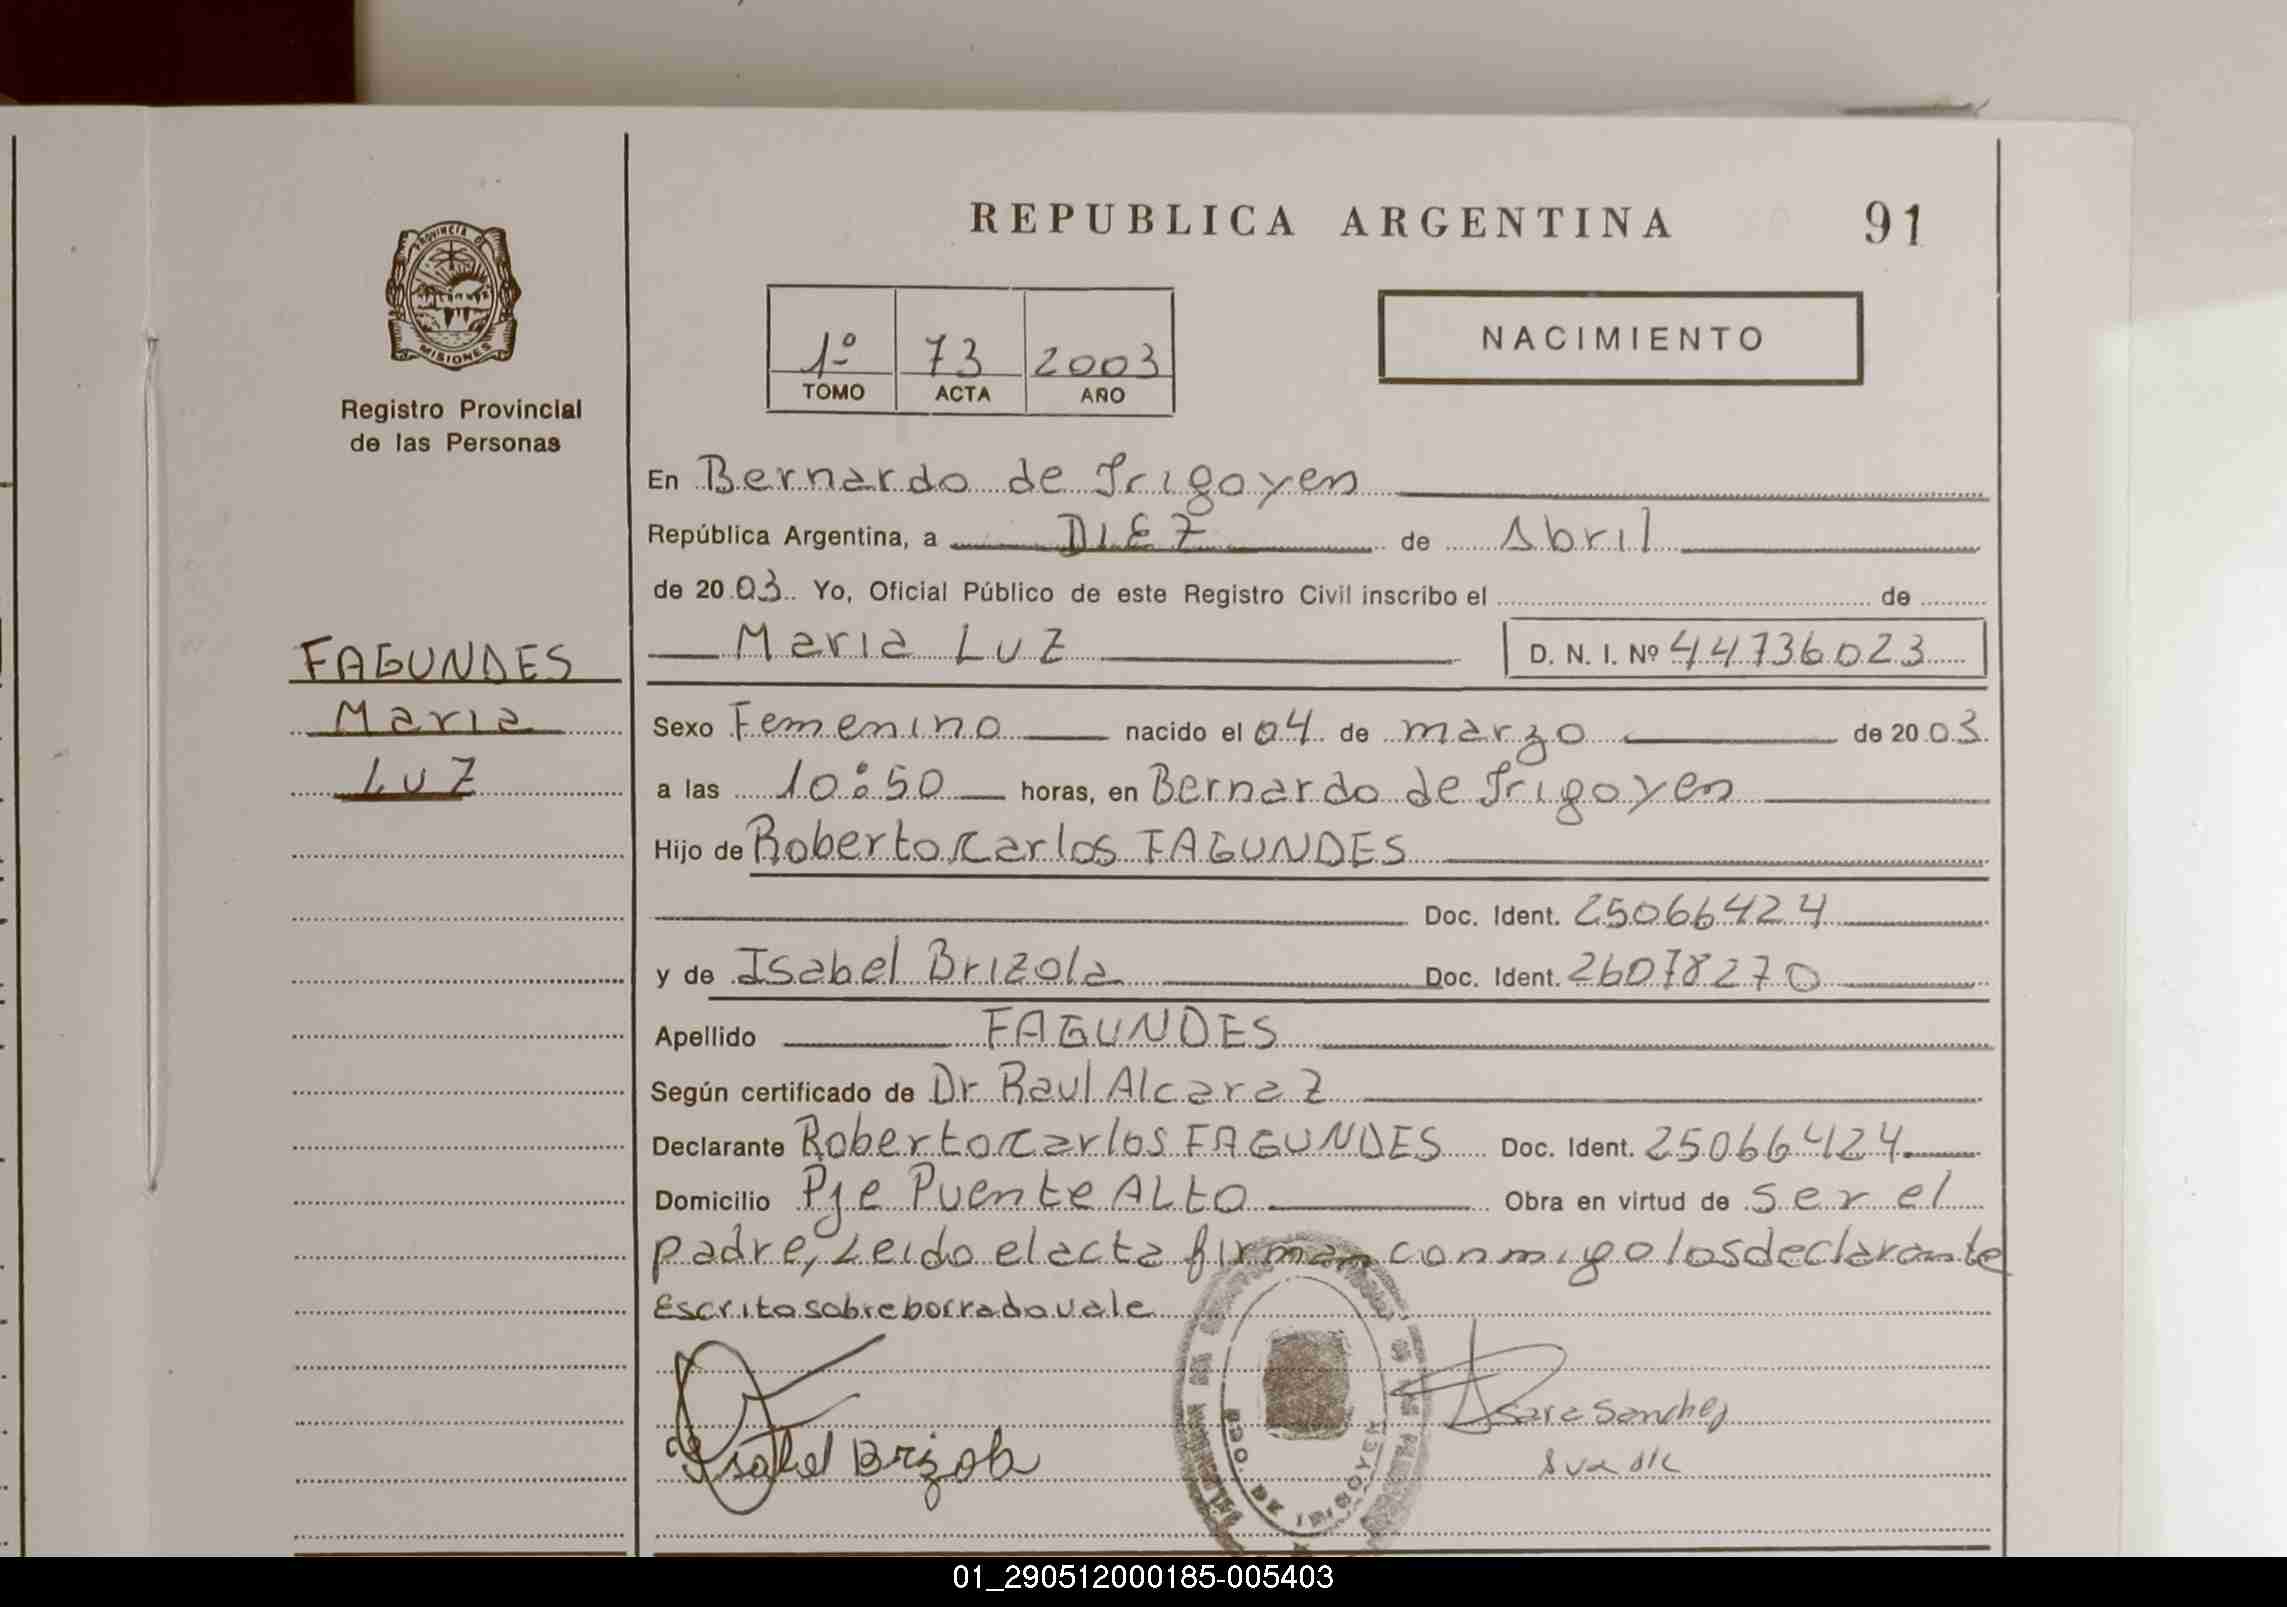 PROVINCIA DE
MISIONES
Registro Provincial
de las Personas
FAGUNDES
Maria
Luz
REPUBLICA ARGENTINA 91
1º 73 2003
TOMO ACTA AÑO
NACIMIENTO
En Bernardo de Irigoyen
República Argentina, a DIEZ de Abril
de 2003 Yo, Oficial Público de este Registro Civil inscribo el de
Maria Luz D. N. I. Nº 44736023
Sexo Femenino nacido el 04 de marzo de 2003
a las 10:50 horas, en Bernardo de Irigoyen
Hijo de Roberto Carlos FAGUNDES
Doc. Ident. 25066424
y de Isabel Brizola Doc. Ident. 26078270
Apellido FAGUNDES
Según certificado de Dr Raul Alcaraz
Declarante Roberto Carlos FAGUNDES Doc. Ident. 25066424
Domicilio Pje Puente ALto Obra en virtud de ser el
padre, Leido el acta firman conmigo los declarante
Escrito sobre borrado vale
Sara Sanchez
Isabel Brizola
BDO. DE IRIGOYEN
01_290512000185-005403